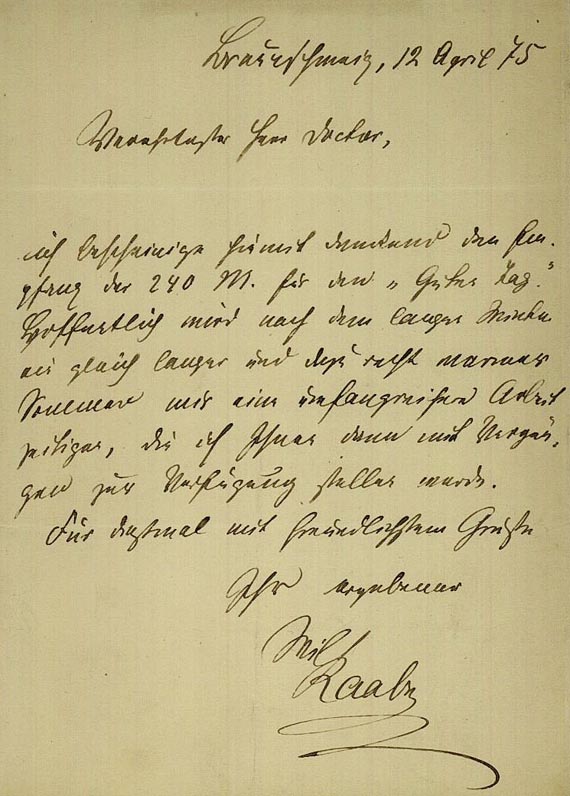 Braunschweig, 12 April 75
Verehrtester Herr Doctor,
ich bescheinige hiemit dankend den Em-
pfang der 240 M. für den „Guten Tag."
Hoffentlich wird nach dem langen Winter
ein gleich langer und dazu recht warmer
Sommer mir eine umfangreichere Arbeit
zeitigen, die ich Ihnen dann mit Vergnü-
gen zur Verfügung stellen werde.
Für diesmal mit freundlichstem Gruße
Ihr ergebener
Wilh
Raabe